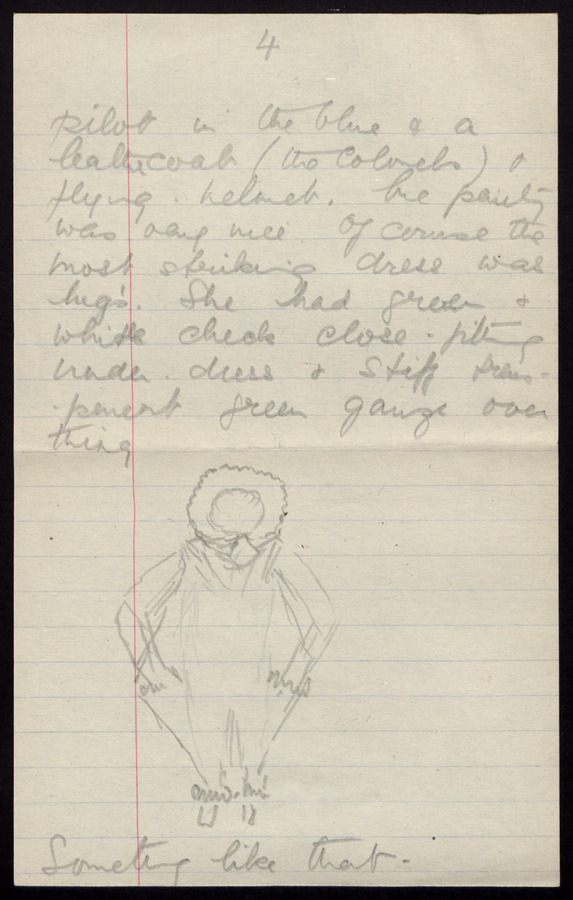 4
pilot in the blue & a
leather coat (the Colonel's) &
flying helmet. The party
was very nice. Of course the
most striking dress was
She had green &
white check close-fitting
under-dress & stiff trans-
-parent green gauze over
thing
Something like that -